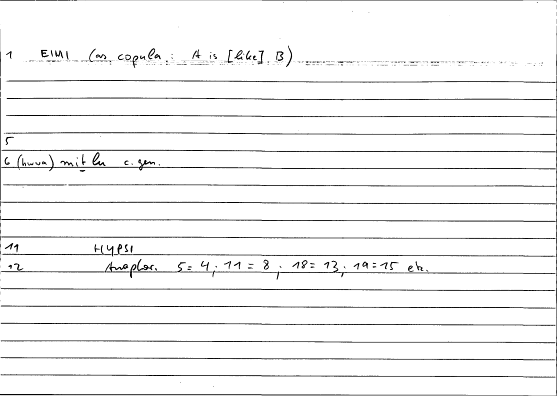 1 EIMI (as copula: A is [like] B)
5
6 (huwa) mitlu c. gen.
11 HYPSI
12 Anaphor. 5=4; 11=8; 18=13; 19=15 etc.